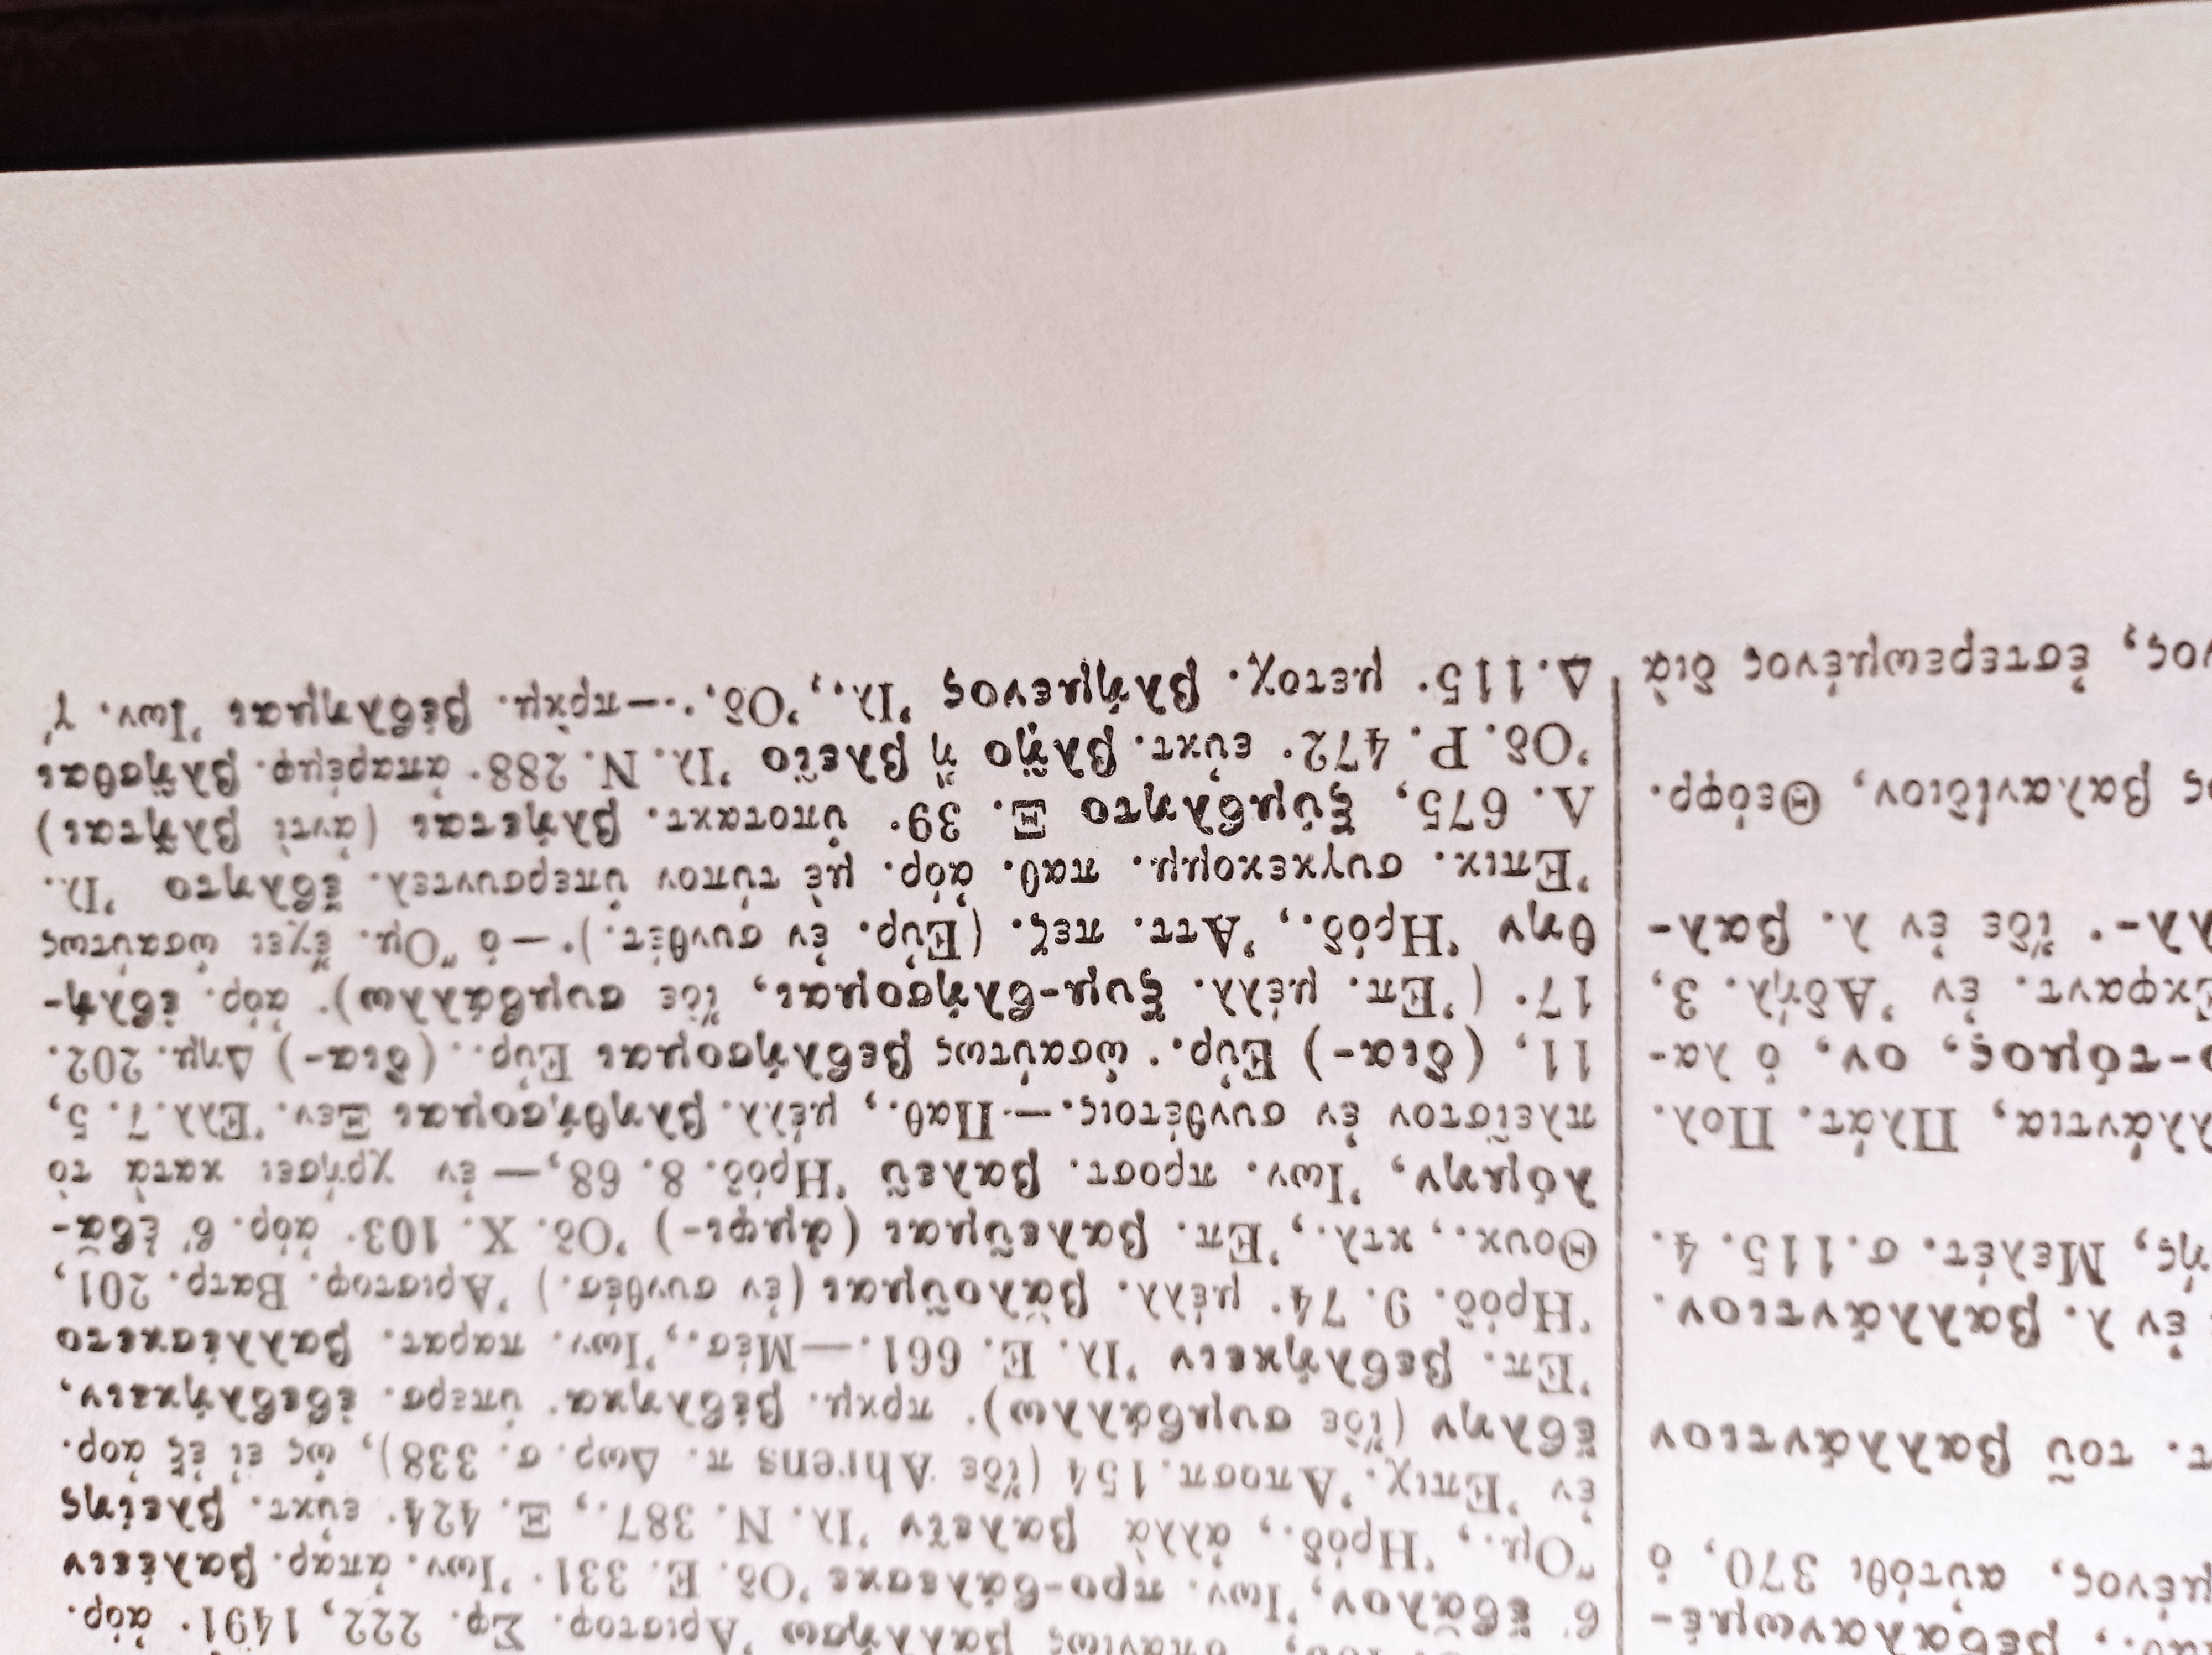 βεβαλανωμέ-
μένος, αὐτόθι 370, ὁ
τ. τοῦ βαλλάντιον
ἐν λ. βαλλάντιον.
ής, Μελέτ. σ. 115. 4.
λάντια, Πλάτ. Πολ.
-τόμος, ον, ὁ λα-
Ἐκφαντ. ἐν Ἀδήλ. 3,
λλ-· ἴδε ἐν λ. βαλ-
ς βαλανίδιον, Θεόφρ.
νος, ἐστερεωμένος διὰ
σπανίως βαλλήσω Ἀριστοφ. Σφ. 222, 1491· ἀόρ.
β΄ ἔβᾰλον, Ἰων. προ-βάλεσκε Ὀδ. Ε. 331· Ἰων. ἀπαρ. βαλέειν
Ὅμ., Ἡρόδ., ἀλλὰ βαλεῖν Ἰλ. Ν. 387., Ξ. 424· εὐκτ. βλείης
ἐν Ἐπιχ. Ἀποσπ. 154 (ἴδε Ahrens π. Δωρ. σ. 338), ὡς εἰ ἐξ ἀορ.
ἔβλην (ἴδε συμβάλλω)· πρκμ. βέβληκα· ὑπερσ. ἐβεβλήκειν,
Ἐπ. βεβλήκειν Ἰλ. Ε. 661.—Μέσ., Ἰων. παρατ. βαλλέσκετο
Ἡρόδ. 9. 74· μέλλ. βᾰλοῦμαι (ἐν συνθέσ.) Ἀριστοφ. Βατρ. 201,
Θουκ., κτλ., Ἐπ. βαλεῦμαι (ἀμφι-) Ὀδ. Χ. 103· ἀόρ. β΄ ἐβᾰ-
λόμην, Ἰων. προστ. βαλεῦ Ἡρόδ. 8. 68,—ἐν χρήσει κατὰ τὸ
πλεῖστον ἐν συνθέτοις.—Παθ., μέλλ. βληθήσομαι Ξεν. Ἑλλ. 7. 5,
11, (δια-) Εὐρ.· ὡσαύτως βεβλήσομαι Εὐρ., (δια-) Δημ. 202.
17· (Ἐπ. μέλλ. ξυμ-βλήσομαι, ἴδε συμβάλλω)· ἀόρ. ἐβλή-
θην Ἡρόδ., Ἀττ. πεζ. (Εὐρ. ἐν συνθέτ.)·—ὁ Ὅμ. ἔχει ὡσαύτως
Ἐπικ. συγκεκομμ. παθ. ἀόρ. μὲ τύπον ὑπερσυντελ. ἔβλητο Ἰλ.
Λ. 675, ξύμβλητο Ξ. 39· ὑποτακτ. βλήεται (ἀντὶ βλῆται)
Ὀδ. Ρ. 472· εὐκτ. βλῇο ἢ βλεῖο Ἰλ. Ν. 288· ἀπαρέμφ. βλῆσθαι
Δ. 115· μετοχ. βλήμενος Ἰλ., Ὀδ.·—πρκμ. βέβλημαι Ἰων. γ΄